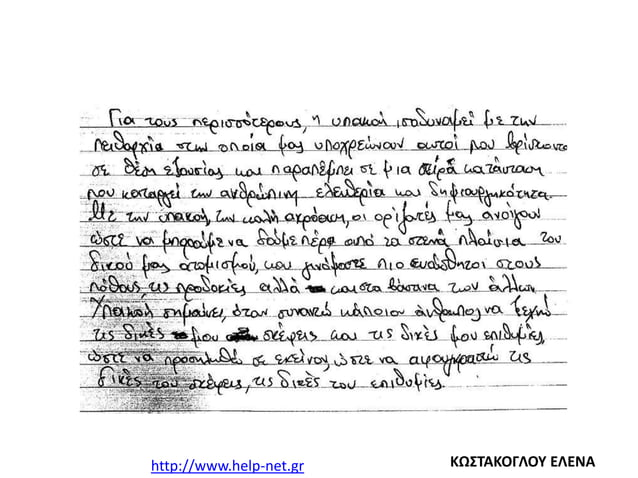 Για τους περισσότερους, η υπακοή ισοδυναμεί με την
πειθαρχία στην οποία μας υποχρεώνουν αυτοί που βρίσκονται
σε θέση εξουσίας και παραπέμπει σε μια στείρα κατάσταση
που καταργεί την ανθρώπινη ελευθερία και δημιουργικότητα.
Με την υπακοή, την καλή ακρόαση, οι ορίζοντές μας ανοίγουν
ώστε να μπορούμε να δούμε πέρα από τα στενά πλαίσια του
δικού μας ατομισμού, και γινόμαστε πιο ευαίσθητοι στους
πόθους, τις προσδοκίες αλλά και στα βάσανα των άλλων.
Υπακοή σημαίνει, όταν συναντώ κάποιον άνθρωπο, να ξεχνώ
τις δικές μου σκέψεις και τις δικές μου επιθυμίες
ώστε να προσηλωθώ σε εκείνον, ώστε να αφουγκραστώ τις
δικές του σκέψεις, τις δικές του επιθυμίες.
http://www.help-net.gr
ΚΩΣΤΑΚΟΓΛΟΥ ΕΛΕΝΑ